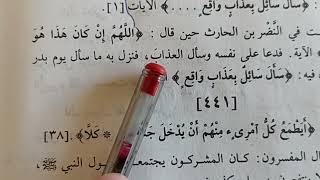 ﴿سَأَلَ سَائِلٌ بِعَذَابٍ وَاقِعٍ ....﴾ الآيات [١].
ت في النَّضْر بن الحارث حين قال : ﴿اللَّهُمَّ إِنْ كَانَ هَذَا هُوَ
﴾ الآية. فدعا على نفسه وسأل العذابَ، فنزل به ما سأل يوم بدر
﴿سَأَلَ سَائِلٌ بِعَذَابٍ وَاقِعٍ﴾
[٤٤١]
﴿أَيَطْمَعُ كُلُّ امْرِىءٍ مِنْهُمْ أَنْ يُدْخَلَ * كَلَّا﴾ [٣٨].
المفسرون: كان المشركون ول النبي ﷺ،